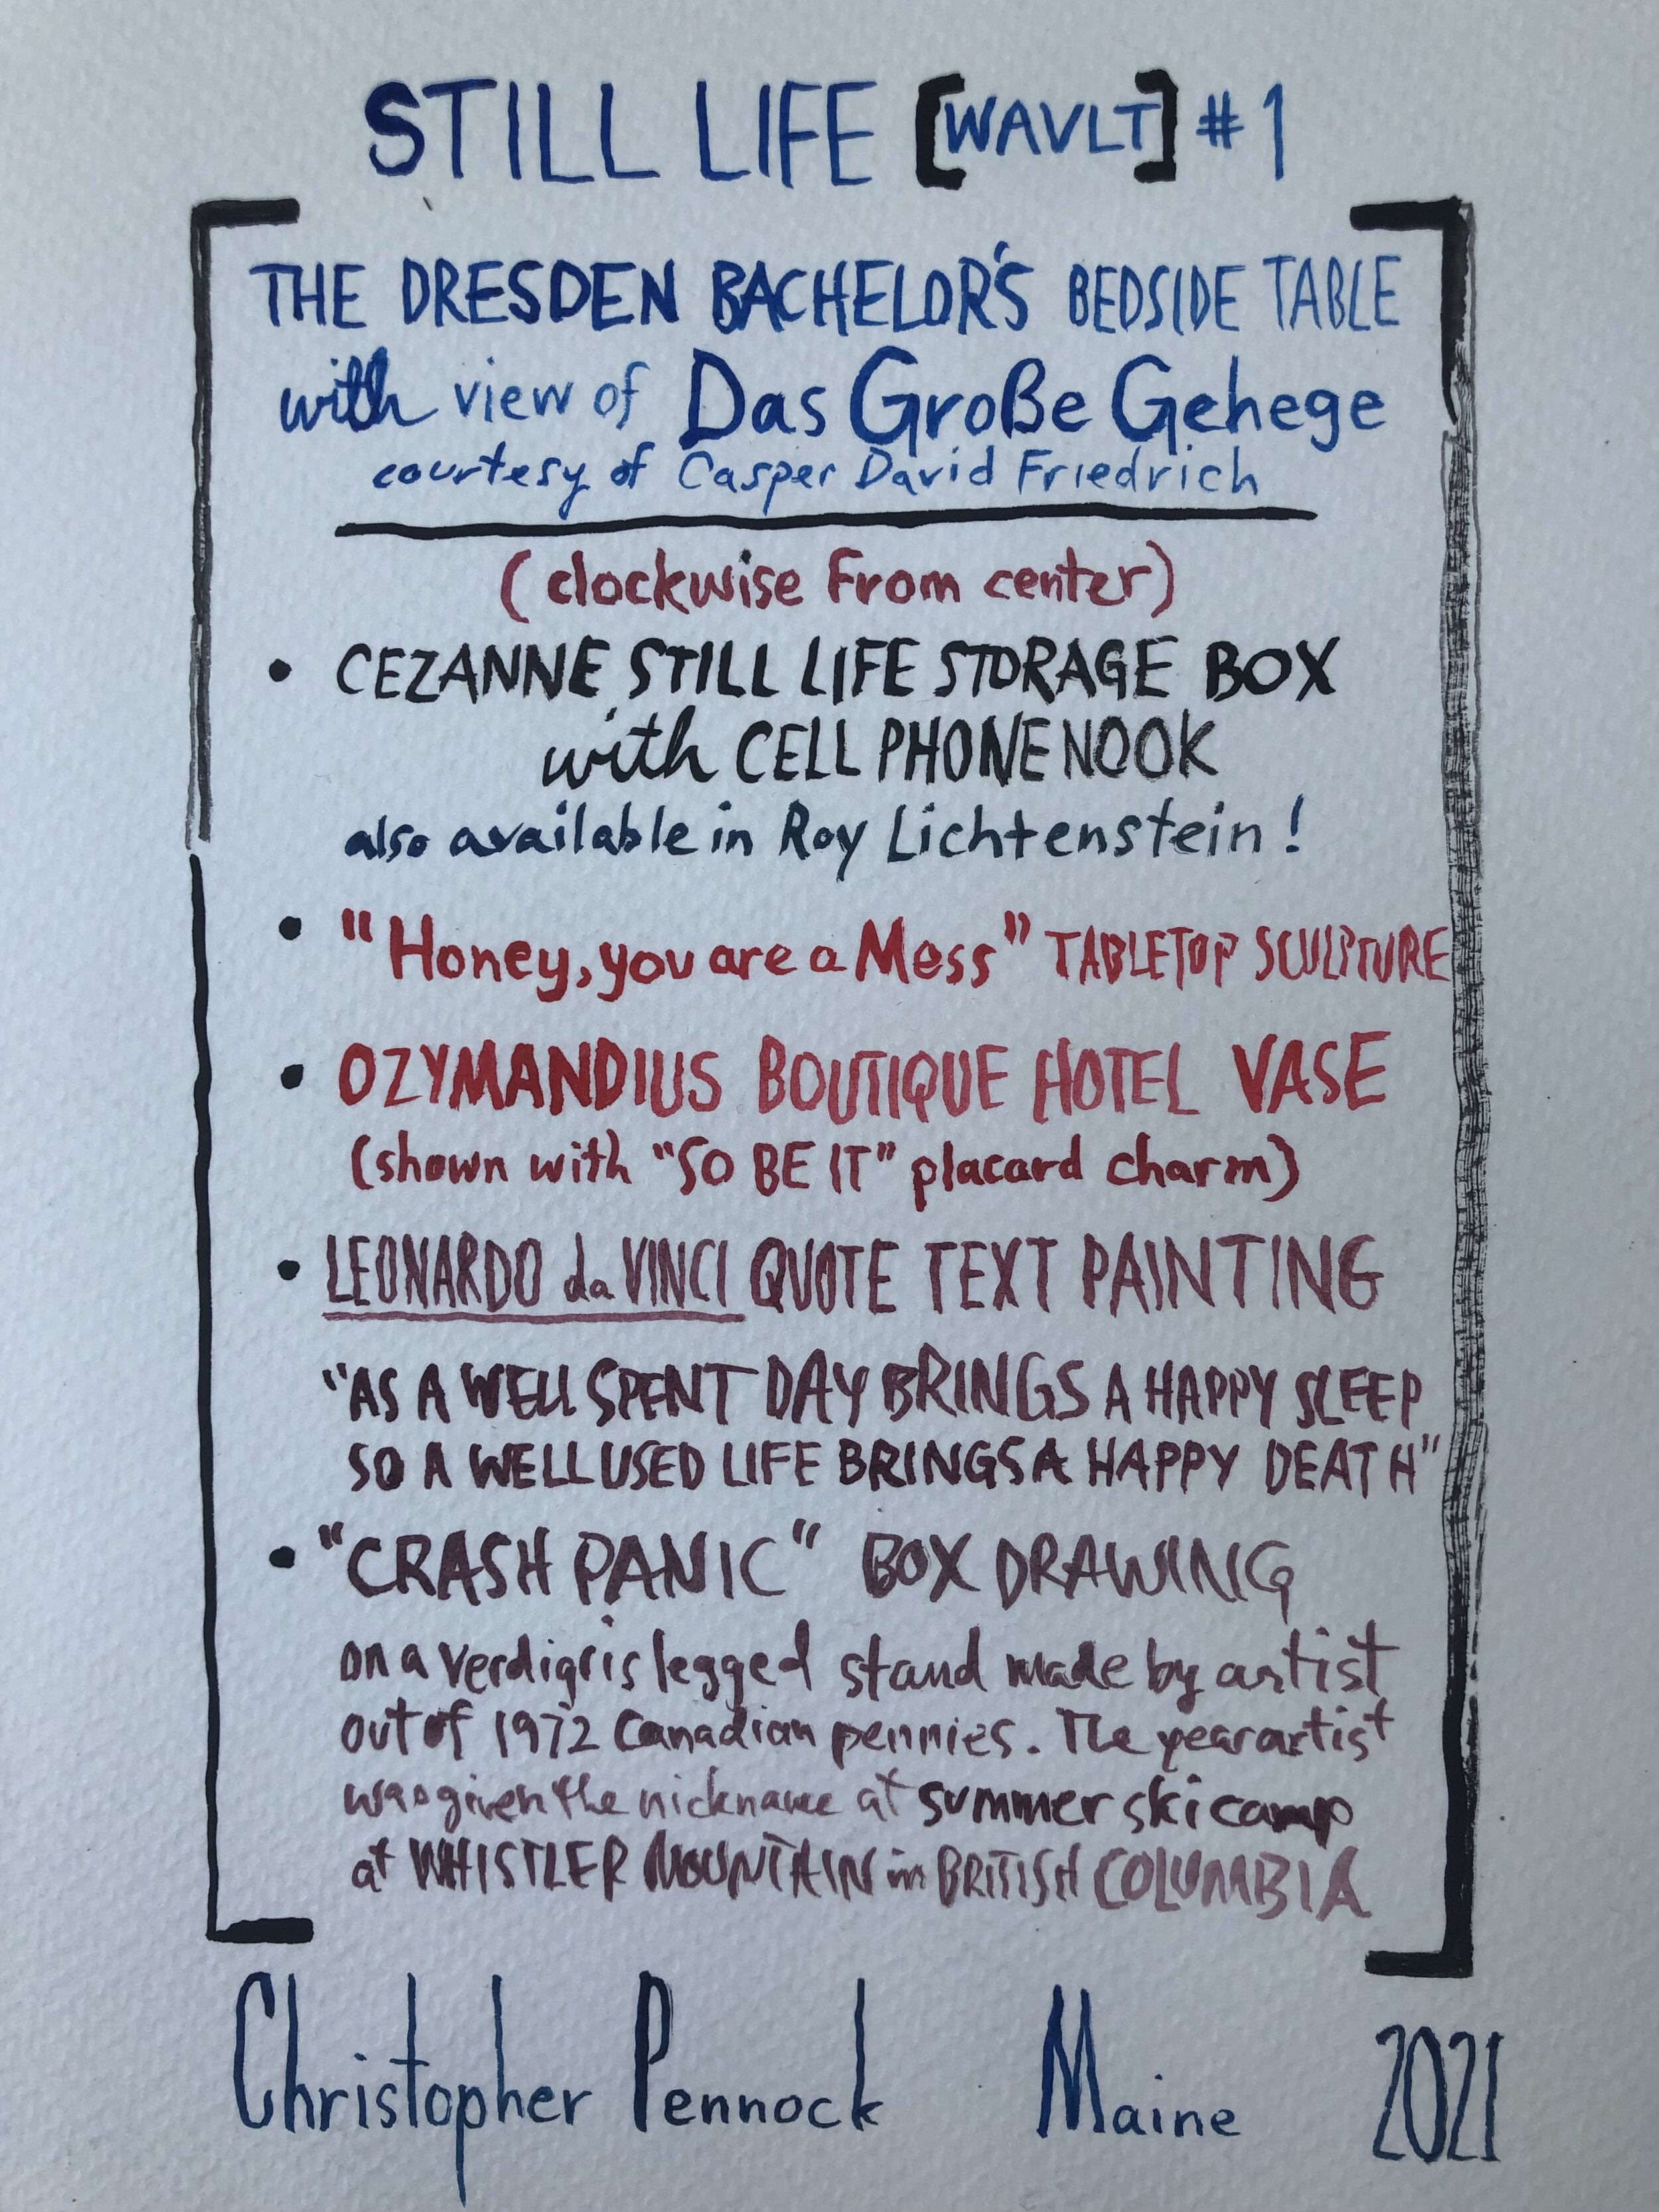 STILL LIFE [WAVLT] #1
THE DRESDEN BACHELOR'S BEDSIDE TABLE
with view of Das Große Gehege
courtesy of Casper David Friedrich
(clockwise from center)
• CEZANNE STILL LIFE STORAGE BOX
with CELL PHONE NOOK
also available in Roy Lichtenstein!
• "Honey, you are a Mess" TABLETOP SCULPTURE
• OZYMANDIUS BOUTIQUE HOTEL VASE
(shown with "SO BE IT" placard charm)
• LEONARDO da VINCI QUOTE TEXT PAINTING
"AS A WELL SPENT DAY BRINGS A HAPPY SLEEP
SO A WELL USED LIFE BRINGS A HAPPY DEATH"
• "CRASH PANIC" BOX DRAWING
on a verdigris legged stand made by artist
out of 1972 Canadian pennies. The year artist
was given the nickname at summer ski camp
at WHISTLER MOUNTAIN in BRITISH COLUMBIA
Christopher Pennock Maine 2021